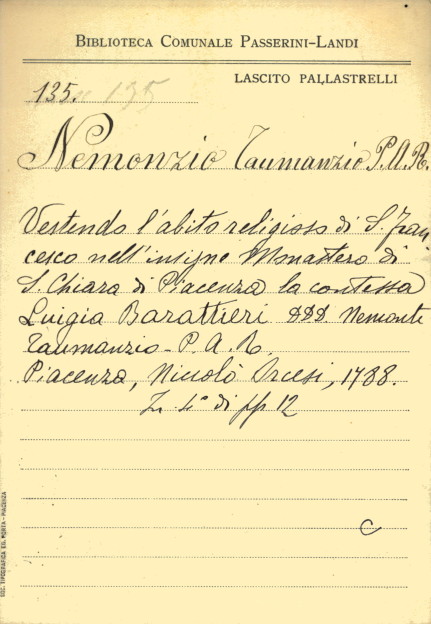 BIBLIOTECA COMUNALE PASSERINI-LANDI
LASCITO PALLASTRELLI
135. 135
Nemonzio Taumanzio P.A.R.
Vestendo l'abito religioso di S. Fran
cesco nell'insigne Monastero di
S. Chiara di Piacenza la contessa
Luigia Barattieri DDD. Nemonte
Taumanzio - P. A. R.
Piacenza, Niccolò Orcesi, 1788.
In 4° di pp 12
C
SOC. TIPOGRAFICA ED. PORTA - PIACENZA